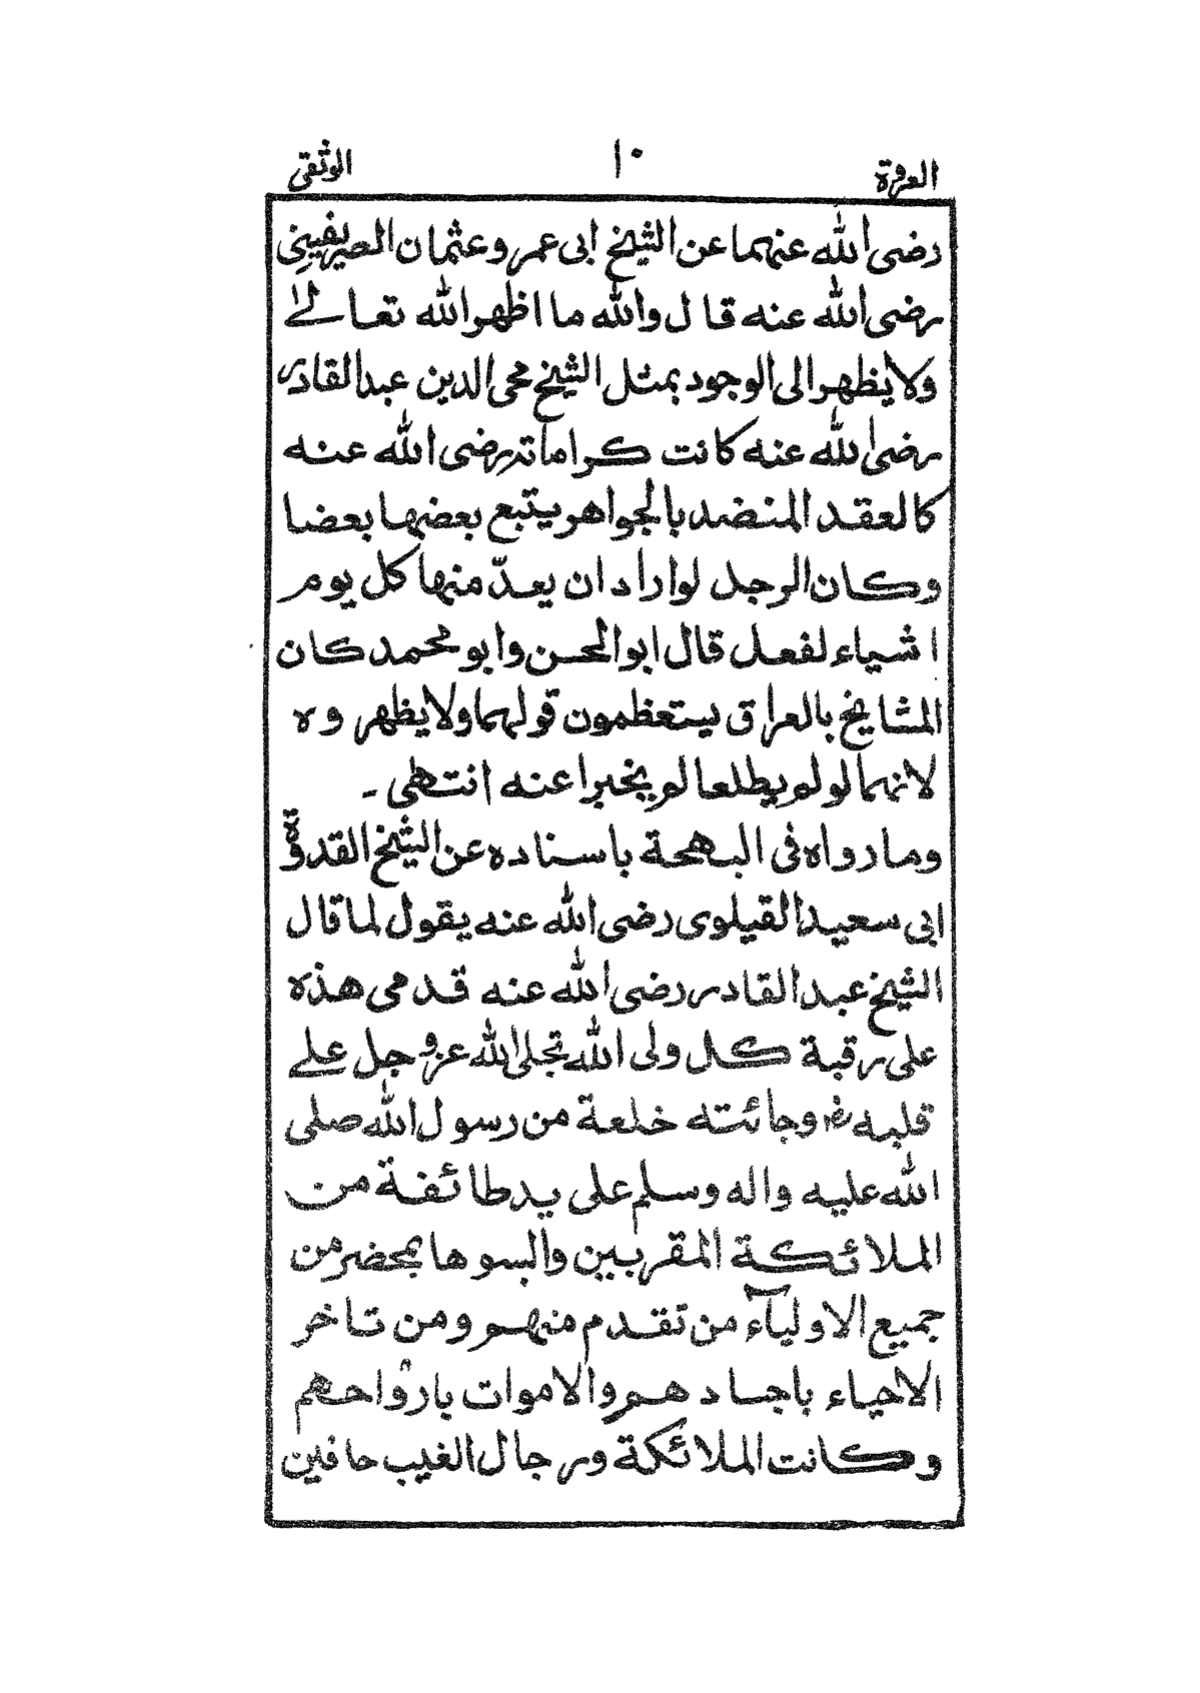 العروة ١٠ الوثقى
رضى الله عنهما عن الشيخ ابى عمرو عثمان الصريفينى
رضى الله عنه قال والله ما اظهر الله تعالىٰ
ولا يظهر الى الوجود بمثل الشيخ محى الدين عبد القادر
رضى الله عنه كانت كراماته رضى الله عنه
كالعقد المنضد بالجواهر يتبع بعضها بعضا
وكان الرجل لو اراد ان يعدّ منها كل يوم
اشياء لفعل قال ابو الحسن وابو محمد كان
المشايخ بالعراق يستعظمون قولهما ولا يظهروه
لانهما لو لم يطلعا لم يخبرا عنه انتهى ـ
وما رواه فى البهجة باسناده عن الشيخ القدوة
ابى سعيد القيلوى رضى الله عنه يقول لما قال
الشيخ عبد القادر رضى الله عنه قدمى هذه
على رقبة كل ولى الله تجلى الله عز وجل على
قلبه وجائته خلعة من رسول الله صلى
الله عليه واله وسلم على يد طائفة من
الملائكة المقربين والبسوها بمحضر من
جميع الاولياۤء من تقدم منهم ومن تاخر
الاحياء باجسادهم والاموات بارواحهم
وكانت الملائكة ورجال الغيب حافين